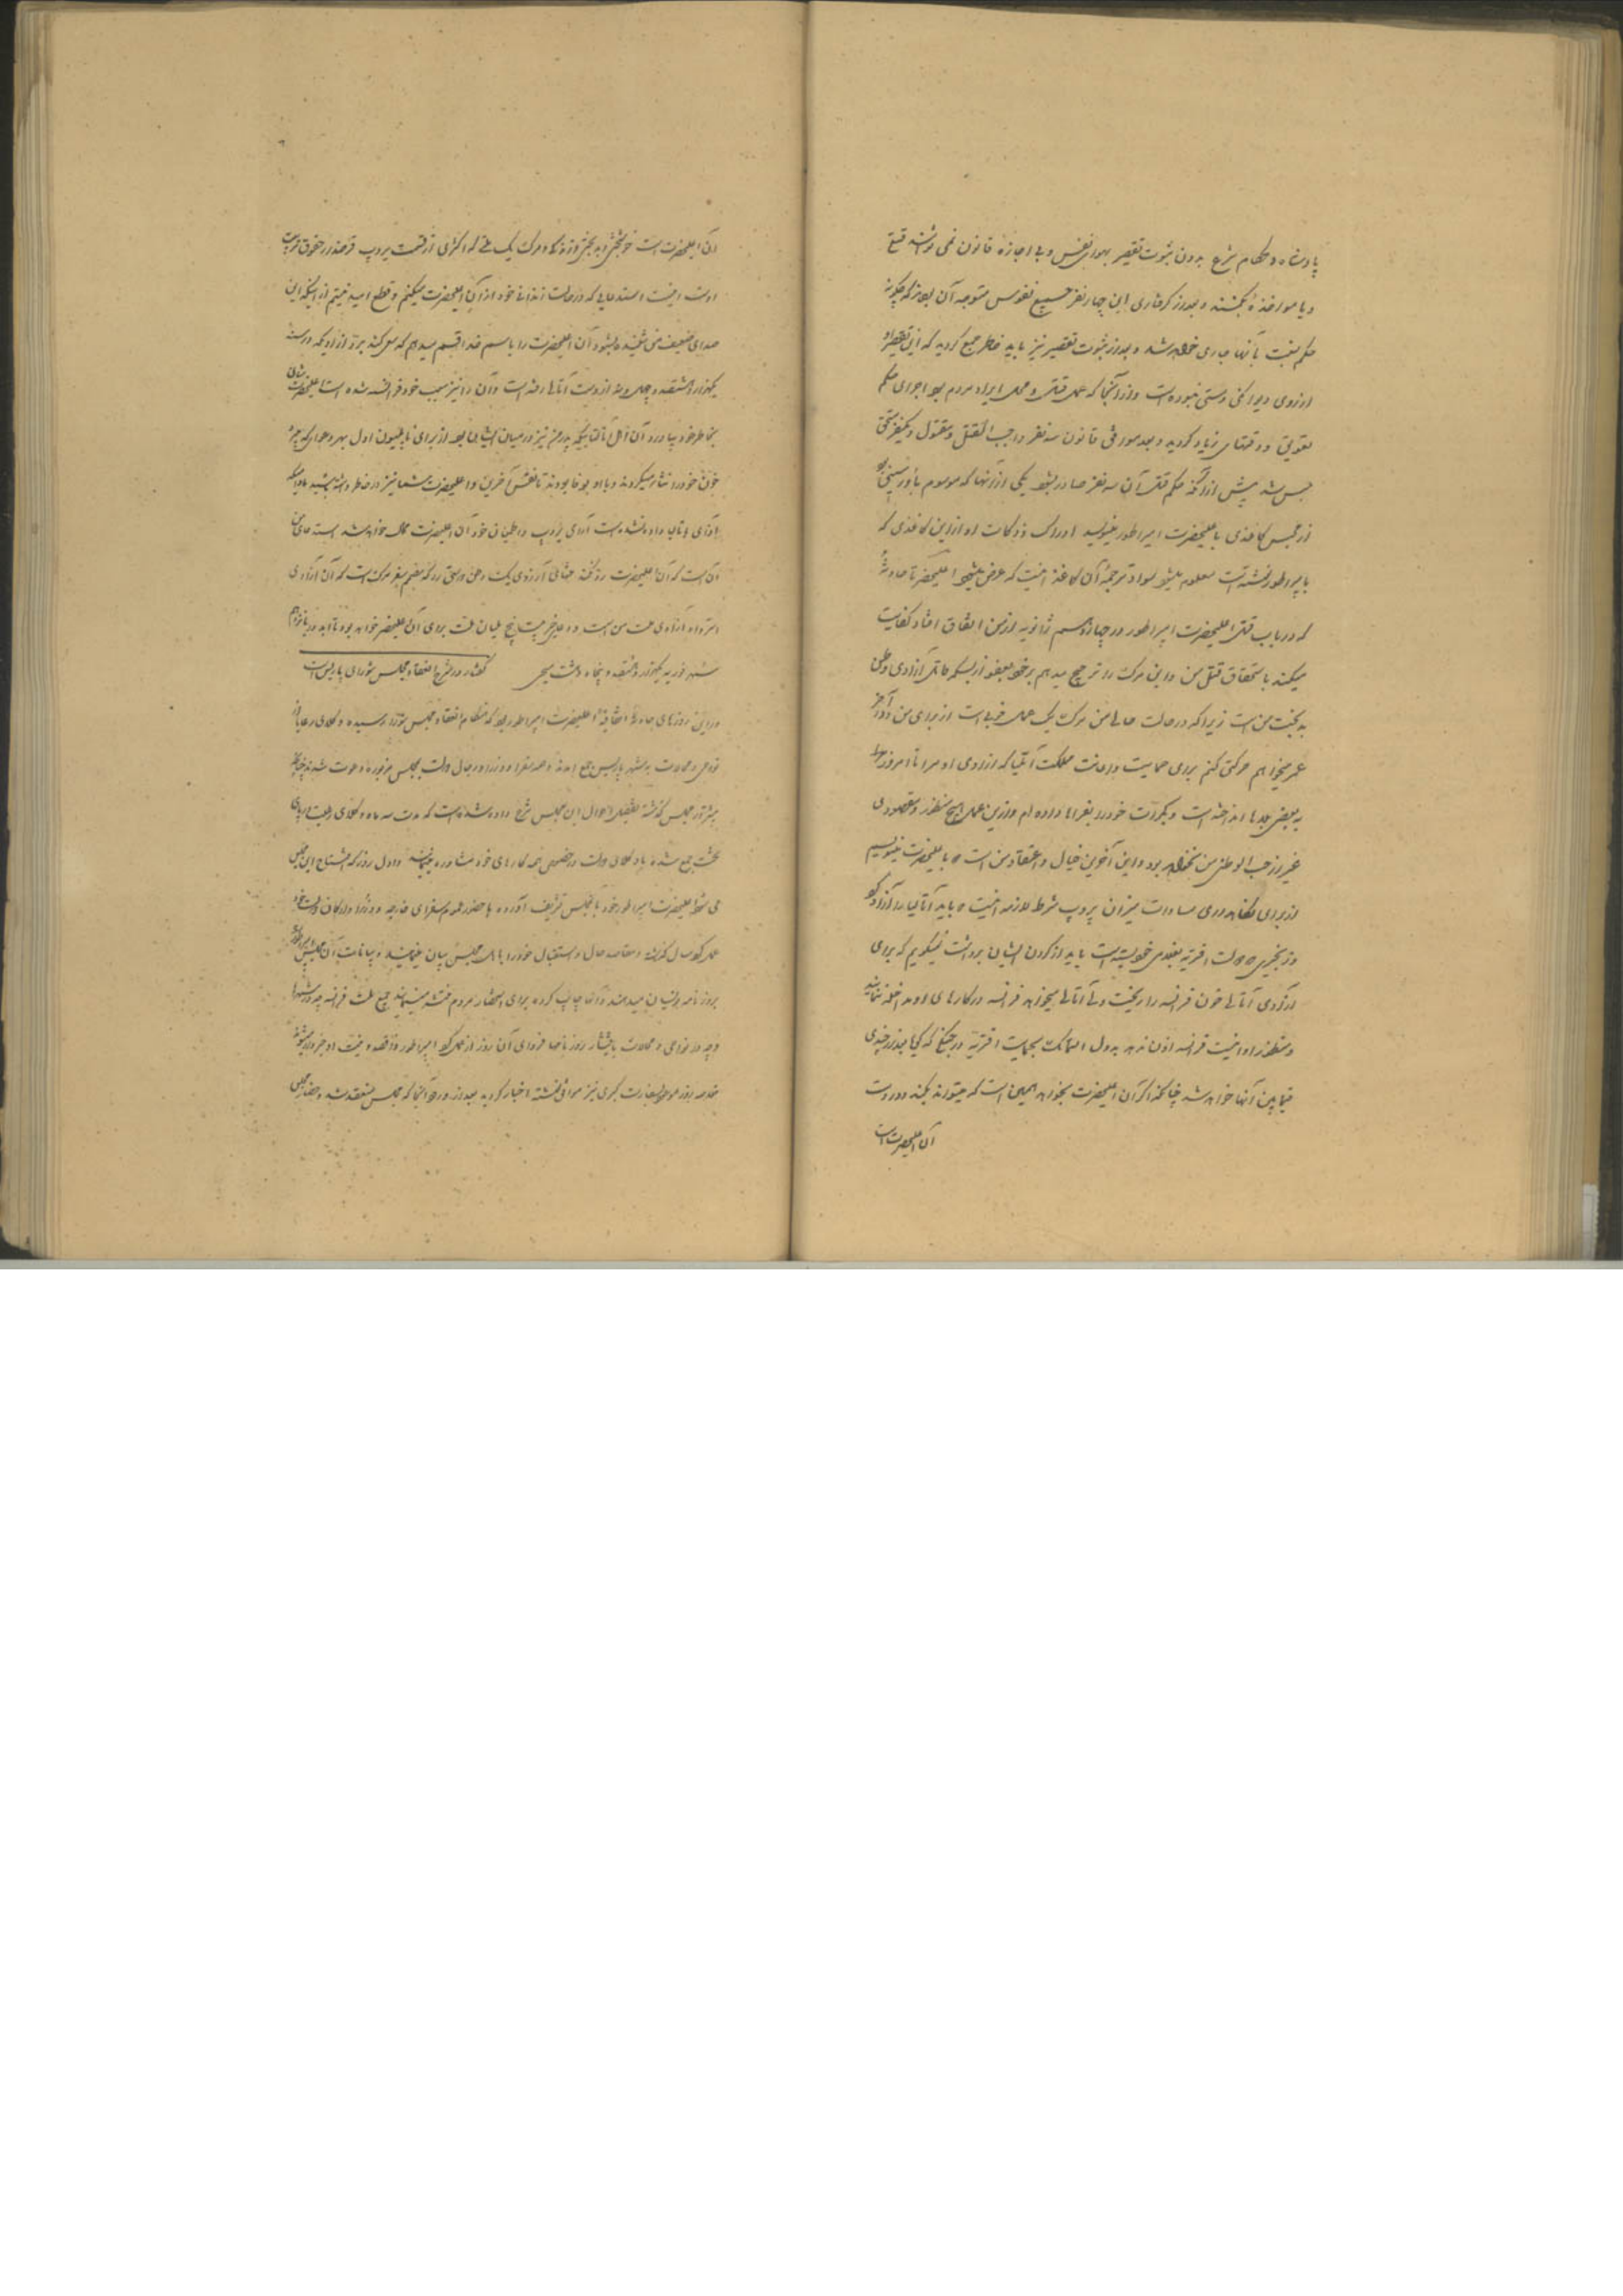 پادشاه و حکام شرع بدون ثبوت تقصیر بهوای نفس و بی اجازه قانون نمی توانند
و یا مواخذه بکشند و بعد از گرفتاری این چهار نفر جمیع نفوس متوجه آن بودند که چگونه
حکم نسبت بآنها جاری خواهد شد و بعد از ثبوت تقصیر نیز باید خاطر جمع گردید که این
از روی دیوانگی و مستی نبوده است و از آنجا که عمل قتل و محل ایراد مردم بود اجرای حکم
تعویق و دقتهای زیاد گردید و بعد موافق قانون سه نفر واجب القتل و مقتول و یکنفر
حبس شد پیش از آنکه حکم قتل آن سه نفر صادر بشود یکی از آنها که موسوم به اورسینی بود
از محبس کاغذی باعلیحضرت امپراطور مینویسد ادراک و ذکاوت او از این کاغذی که
بامپراطور نوشته است معلوم میشود سواد ترجمه آن کاغذ اینست که عرض میشود اعلیحضرتا حادثه
که در باب قتل اعلیحضرت امپراطور در چهاردهم ژانویه از من اتفاق افتاد کفایت
میکند باستحقاق قتل من و این مرگ را ترجیح میدهم بر عفو از بسکه مایل آزادی وطن
بدبخت من است زیرا که در حالت حالی من مرگ یک عمل خوبی است از برای من و در آخر
عمر میخواهم حرکتی کنم برای حمایت و اعانت مملکت ایتالیا که آزادی او مرا تا امروز
به بعضی بلاها انداخته است و بکرات خود را بفدا داده ام و از این عمل هیچ منظور و مقصودی
غیر از حب الوطنی من نخواهد بود و این آخرین خیال و اعتقاد من است که باعلیحضرت مینویسم
از برای نگاهداری مساوات میزان یروپ شرط لازمه اینست که باید ایتالیا را آزاد کرد
و زنجیری که دولت اوتریه بغلامی خویش بسته است باید از گردن ایشان برداشت نمیگویم که برای
آزادی ایتالیا خون فرانسه را ریخت ولی ایتالیا میخواهد فرانسه در کارهای او مداخله ننماید
و منظور او اینست فرانسه اذن ندهد بدول المانک بحمایت اوتریه در جنگی که گویا بعد از چندی
فیمابین آنها خواهد شد چنانکه اگر آن اعلیحضرت بخواهد همین است که میتواند بکند و در دست
آن اعلیحضرت است
آن اعلیحضرت است خوشبختی و بدبختی و زندگی و مرگ یک ملتی که اکثری از قسمت یروپ قرضدار حقوق تربیت
اوست اینست استدعایی که در حالت زندانی خود از آن اعلیحضرت میکنم و قطع امید نیستم از اینکه این
صدای ضعیف من شنیده بشود آن اعلیحضرت را باسم خدا قسم میدهم که سعی کند بر آزادی که در سنه
یکهزار و هشتصد و چهل و نه از دست ایتالیا رفته است و آن را نیز سبب خود فرانسه شده است اعلیحضرت
بخاطر خود بیاورد آن اهل ایتالیا که پدر من نیز در میان ایشان بود از برای ناپلیون اول بهر جایی که میبرد
خون خود را نثار میکردند و باو با وفا بودند تا نفس آخرین و اعلیحضرت شما نیز در خاطر داشته باشید مادامیکه
آزادی بایتالیا داده نشده است آرامی یروپ و اطمینان خود آن اعلیحضرت محال خواهد شد استدعای من
آن است که آن اعلیحضرت رد نکند تمنای آرزوی یک وطن دوستی را که بقدم بقدم مرگ است که آن آزادی
استرداد آزادی ملت من است و دعای خیر بیست و پنج ملیان ملت برای آن اعلیحضرت خواهد بود تا ابد در یازدهم
شهر فوریه یکهزار و هشتصد و پنجاه و هشت مسیحی گفتار در شرح انعقاد مجلس شورای پاریس است
در این روزهای حادثه اتفاقیه اعلیحضرت امپراطور بود که هنگام انعقاد مجلس شورا رسیده وکلای رعایا از
نواحی و محالات بشهر پاریس جمع آمدند و همه سفرا و وزرا و رجال دولت بمجلس مزبوره دعوت شدند چنانچه
پیشتر در مجلس گذشته تفصیل احوال این مجلس شرح داده شده است که مدت سه ماه وکلای رعیت در پای
تخت جمع شده با وکلای دولت در خصوص همه کارهای خود مشاوره مینمایند و اول روز که افتتاح این مجلس
می شود اعلیحضرت امپراطور خود بآن مجلس تشریف آورده با حضور عموم سفرای خارجه و وزرا و ارکان دولت خود
عملکرد سال گذشته و مقاصد حال و استقبال خود را باهل مجلس بیان مینمایند و بیانات آن مجلس
بروزنامه نویسان میدهند و آنها چاپ کرده برای استحضار مردم منتشر مینمایند جمیع ملت فرانسه چه در شهرها
و چه در نواحی و محالات بانتشار روزنامها فردای آن روز از عملکرد امپراطور و از قصد و نیت او خبردار میشوند
خلاصه روز موعود بسفارت کبری نیز موافق نوشته اخبار گردید بعد از ورود آنجا که مجلس منعقد شد و حضار مجلس